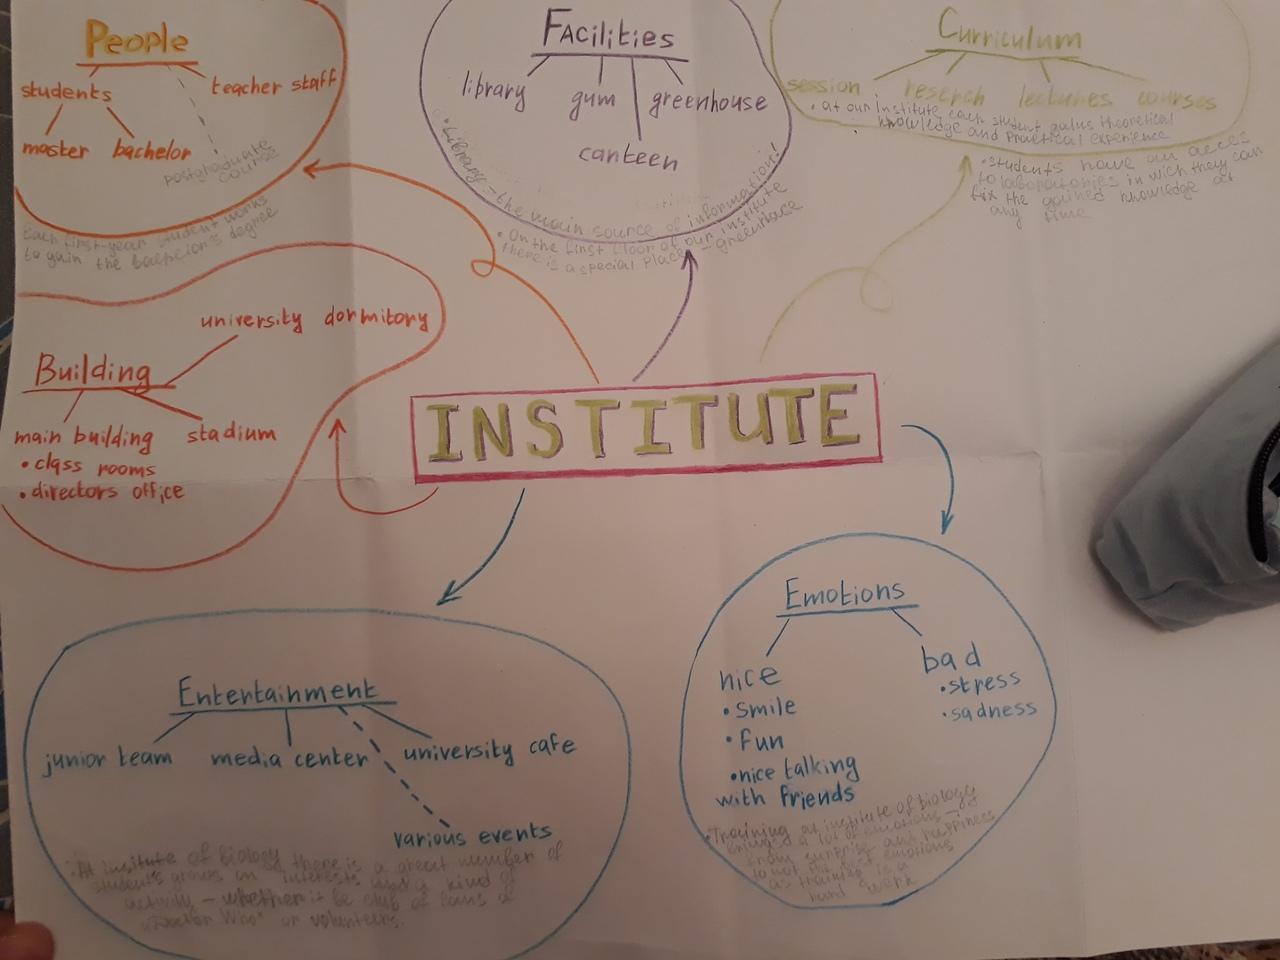 People
students
teacher staff
master bachelor
postgraduate
course
Each first-year student works
to gain the bachelor's degree
Facilities
library
gum
greenhouse
canteen
• Library – the main source of information!
• On the first floor of our institute
there is a special place – greenhace
Curriculum
session reserch lectures courses
• at our institute each student gains theoretical
knowledge and practical experience
• students have an acces
to laboratories in wich they can
fix the gained knowledge at
any time
university dormitory
Building
main building
stadium
• class rooms
• directors office
INSTITUTE
Entertainment
junior team
media center
university cafe
various events
• At insitute of biology there is a great number of
students groups on interests and a kind of
activity – whether it be club of fans of
"Doctor Who" or volunteers.
Emotions
nice
• smile
• fun
• nice talking
with friends
bad
• stress
• sadness
Training at institute of biology
a lot of emotions –
from surprise and happiness
to not the best emotions
as training is a
hard work